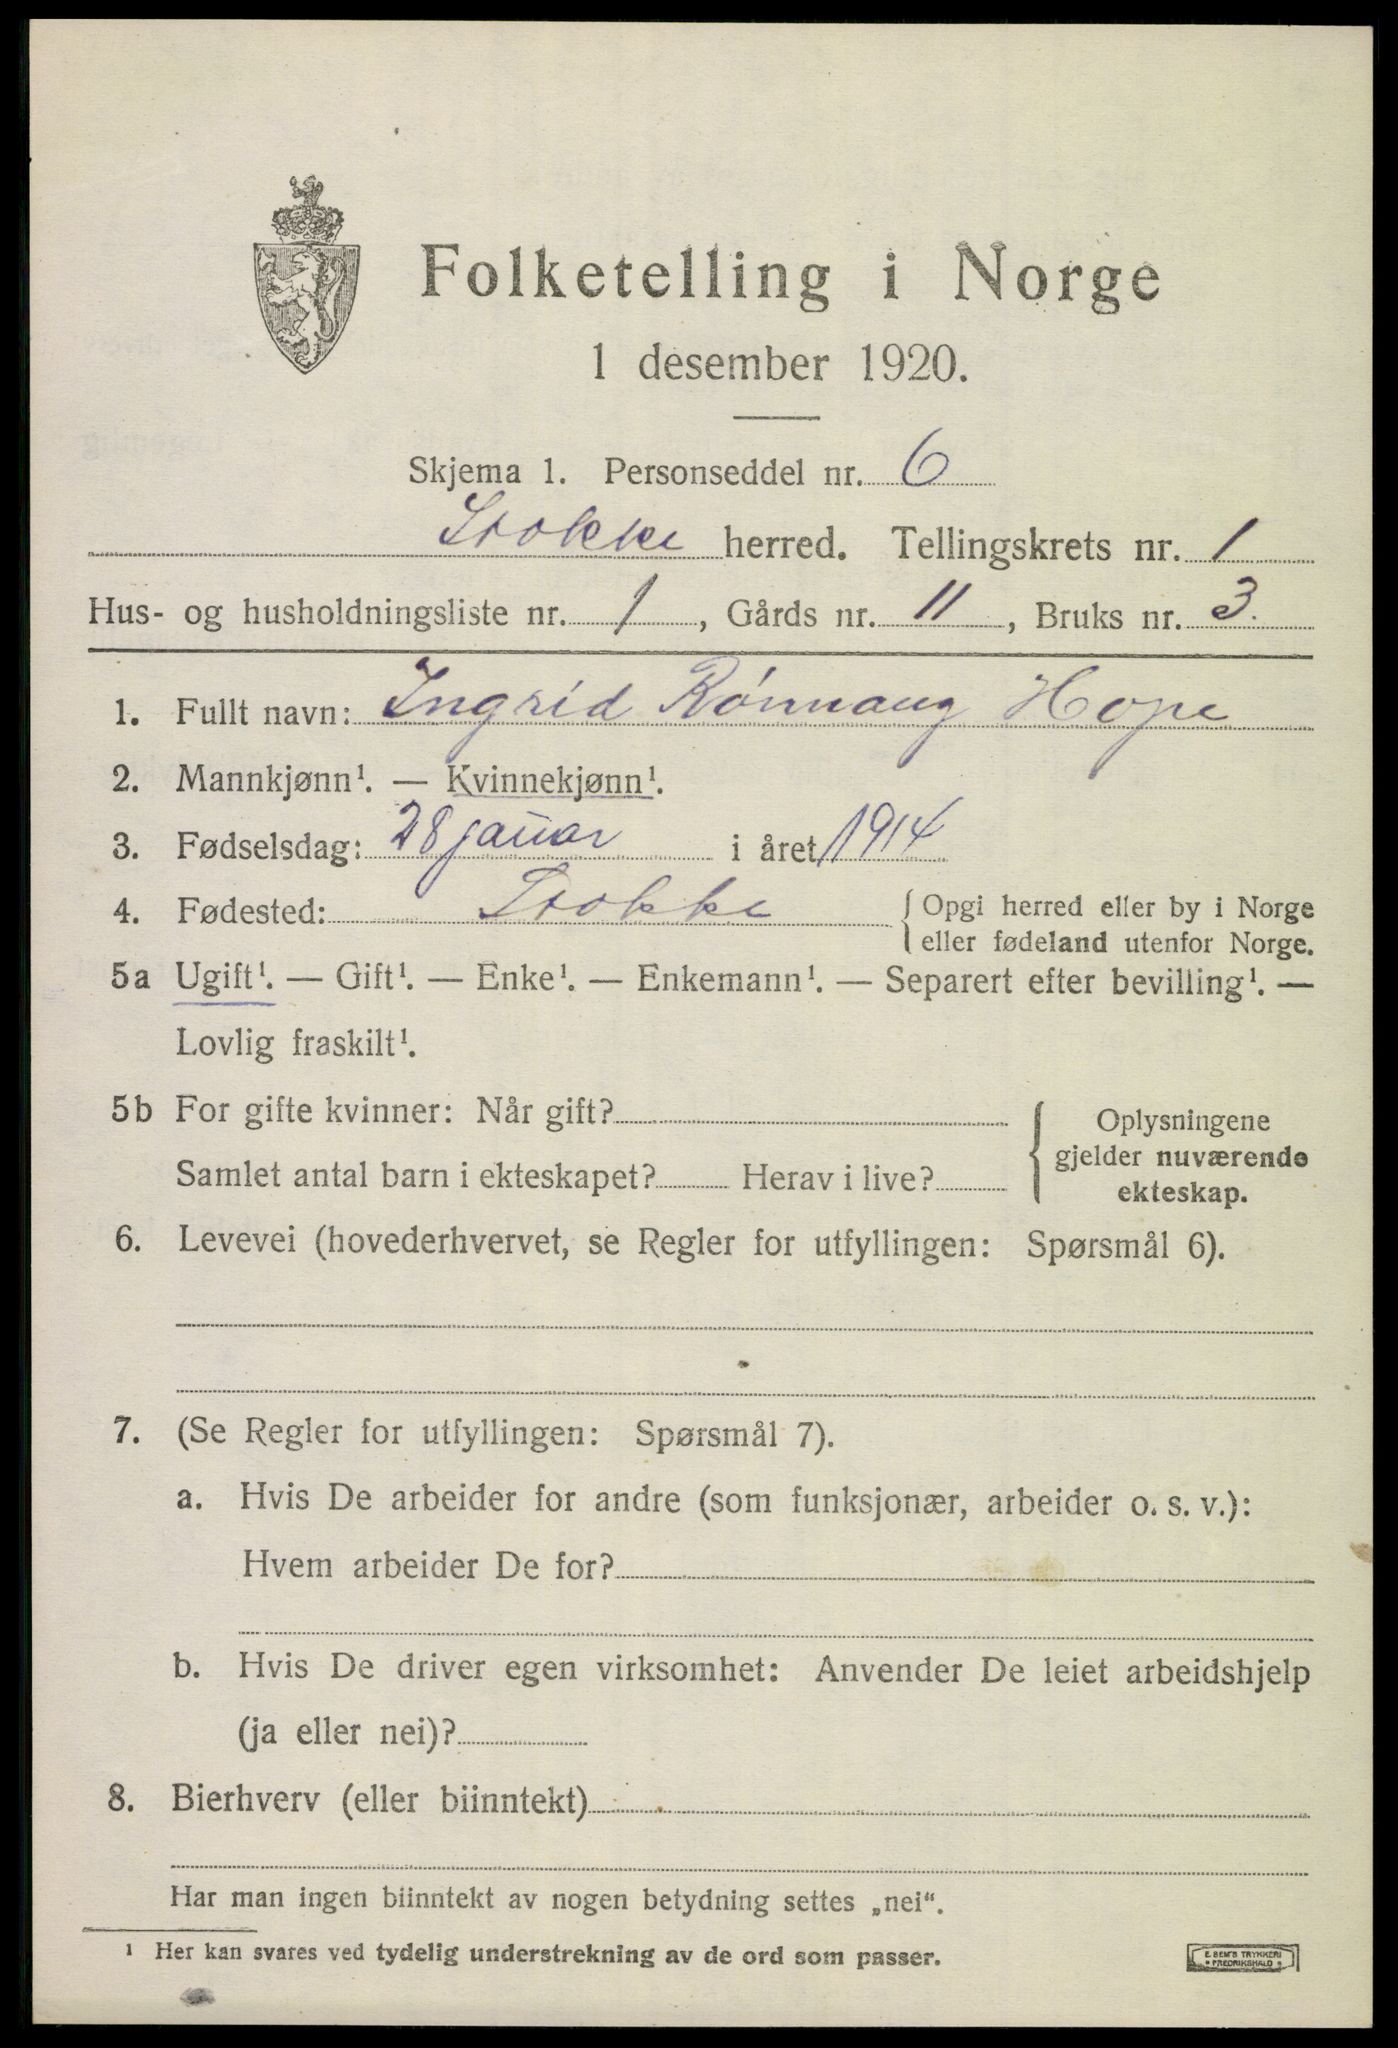 Folketelling i Norge
1 desember 1920.
Skjema 1. Personseddel nr. 6
Stokke herred. Tellingskrets nr. 1
Hus- og husholdningsliste nr. 1, Gårds nr. 11, Bruks nr. 3.
1. Fullt navn: Ingrid Rønnaug Hope
2. Mannkjønn¹. — Kvinnekjønn¹.
3. Fødselsdag: 28 januar i året 1914
4. Fødested: Stokke { Opgi herred eller by i Norge
eller fødeland utenfor Norge.
5a Ugift¹. — Gift¹. — Enke¹. — Enkemann¹. — Separert efter bevilling¹. —
Lovlig fraskilt¹.
5b For gifte kvinner: Når gift?
Samlet antal barn i ekteskapet? Herav i live?
{ Oplysningene
gjelder nuværende
ekteskap.
6. Levevei (hovederhvervet, se Regler for utfyllingen: Spørsmål 6).
7. (Se Regler for utfyllingen: Spørsmål 7).
a. Hvis De arbeider for andre (som funksjonær, arbeider o. s. v.):
Hvem arbeider De for?
b. Hvis De driver egen virksomhet: Anvender De leiet arbeidshjelp
(ja eller nei)?
8. Bierhverv (eller biinntekt)
Har man ingen biinntekt av nogen betydning settes „nei“.
¹ Her kan svares ved tydelig understrekning av de ord som passer.
E. SEM'S TRYKKERI
• FREDRIKSHALD •